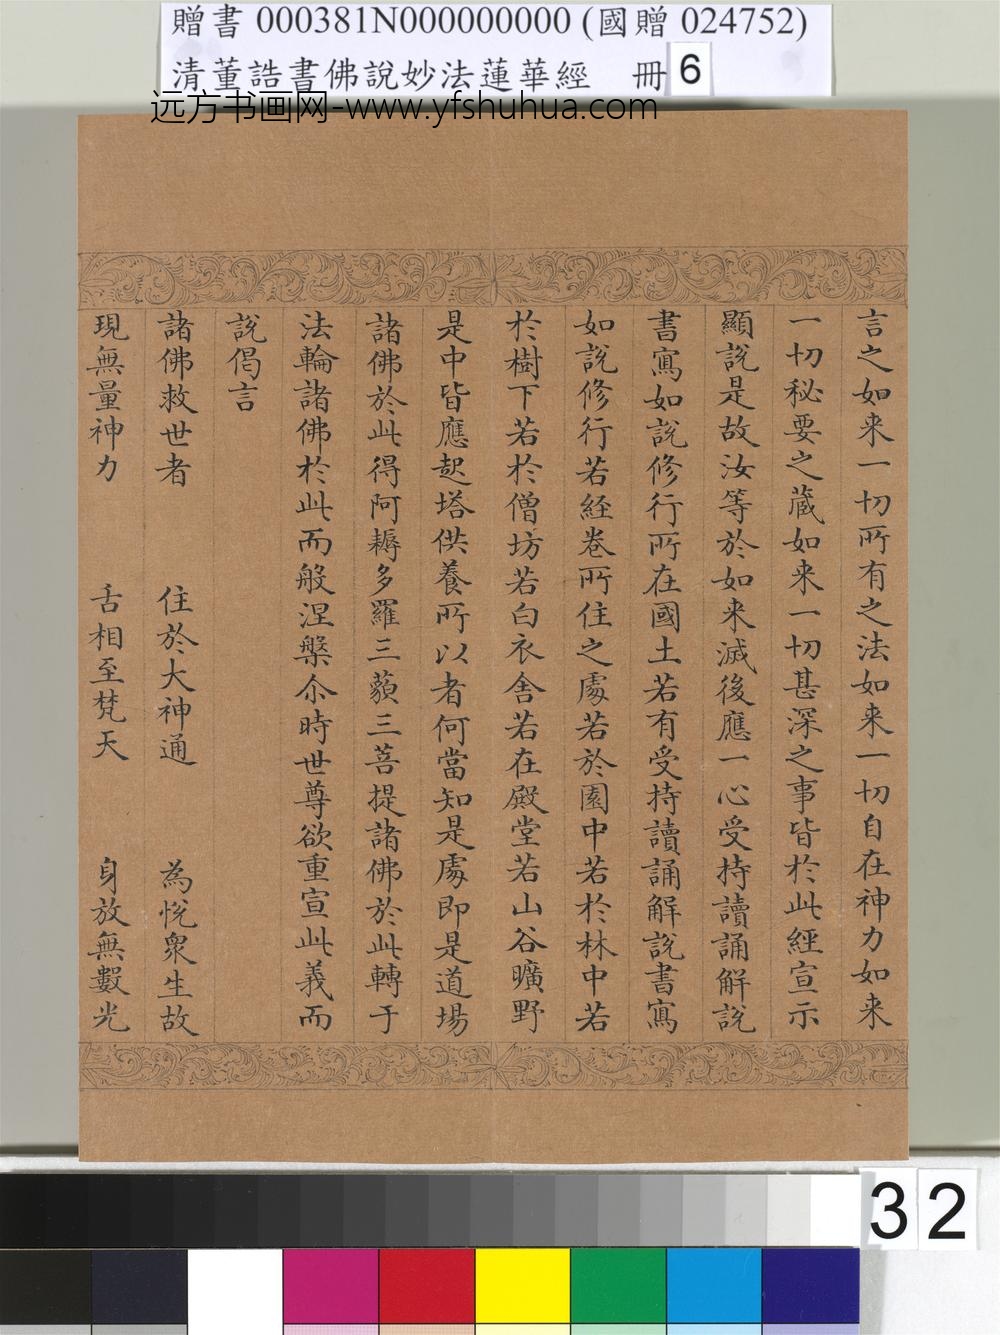 贈書 000381N000000000 (國贈 024752)
清董誥書佛說妙法蓮華經 冊 6
远方书画网-www.yfshuhua.com
言之如来一切所有之法如来一切自在神力如来
一切秘要之蔵如来一切甚深之事皆於此經宣示
顯説是故汝等於如来滅後應一心受持讀誦解説
書寫如説修行所在國土若有受持讀誦解説書寫
如説修行若経卷所住之處若於園中若於林中若
於樹下若於僧坊若白衣舍若在殿堂若山谷曠野
是中皆應起塔供養所以者何當知是處即是道場
諸佛於此得阿耨多羅三藐三菩提諸佛於此轉于
法輪諸佛於此而般涅槃尒時世尊欲重宣此義而
説偈言
諸佛救世者 住於大神通 為悅衆生故
現無量神力 舌相至梵天 身放無數光
32